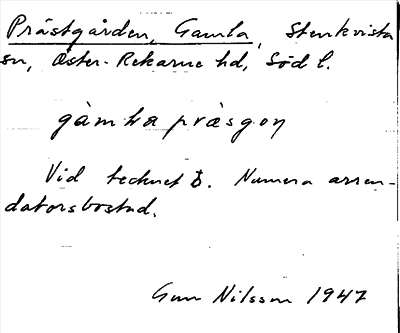 Prästgården, Gamla, Stenkvista
sn, Öster-Rekarne hd, Söd l.
gàmḷa prǽsgoɳ
Vid tecknet ƀ. Numera arren-
datorsbostad.
Gun Nilsson 1947